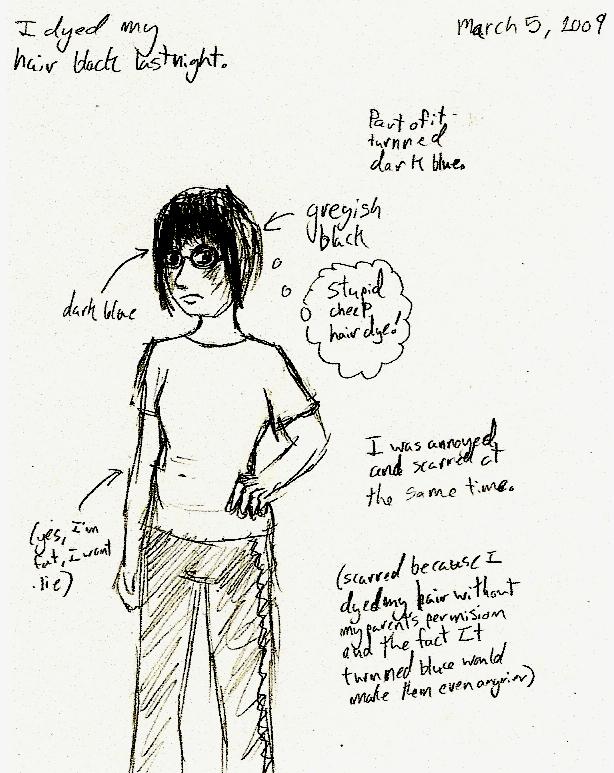 I dyed my
hair black last night.
March 5, 2009
Part of it
turnned
dark blue.
greyish
black
dark blue
Stupid
cheep
hair dye!
I was annoyed
and scarred at
the same time.
(yes, I'm
fat, I want
lie)
(scarred because I
dyed my hair without
my parent's permision
and the fact It
turnned blue would
make them even angrier)